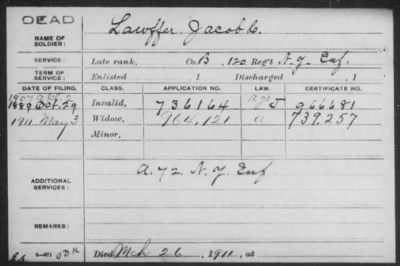 DEAD
NAME OF SOLDIER: Lawffer Jacob C.
SERVICE: Late rank, Co. B, 120 Reg't N.Y. Inf.
TERM OF SERVICE: Enlisted , 1 Discharged , 1
DATE OF FILING. CLASS. APPLICATION NO. LAW. CERTIFICATE NO.
1889 Oct. 29 Invalid, 736164 J 966681
1911 May 3 Widow, 964,121 a 739,257
Minor,
ADDITIONAL SERVICES: A. 72 N.Y. Inf
REMARKS:
Died Mch 26, 1911, at